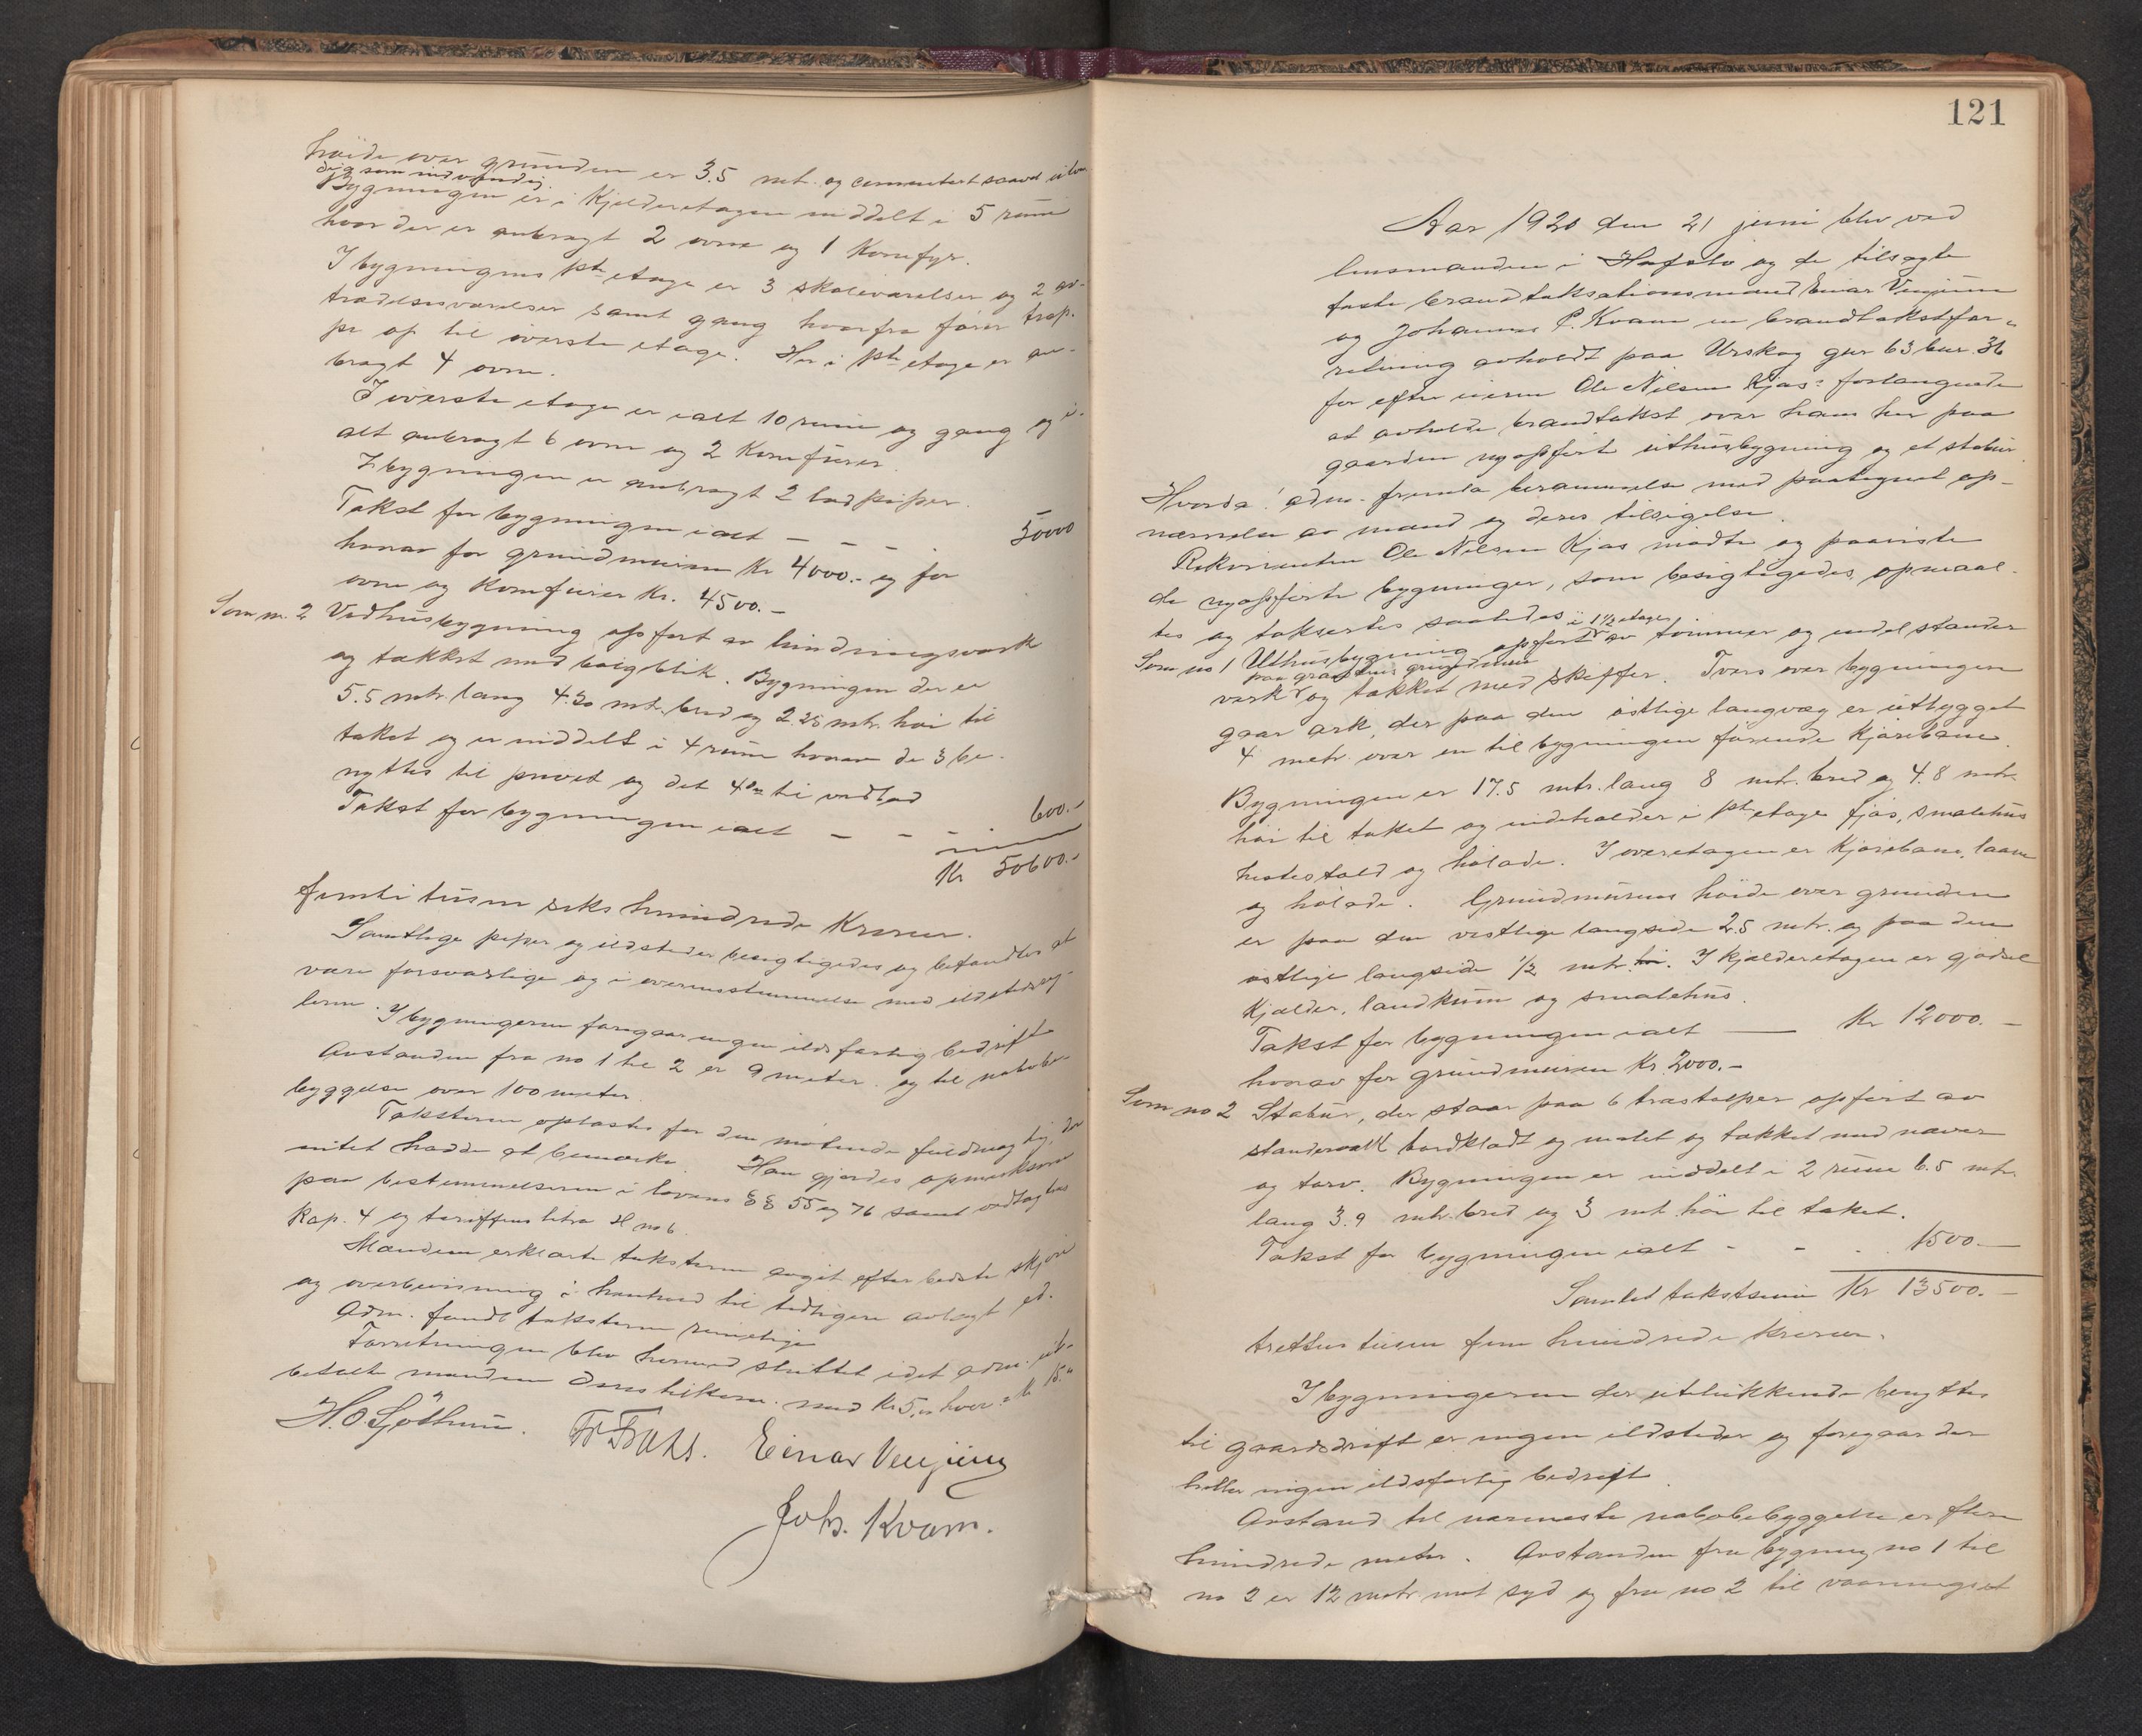 høide over grunden er 3.5 mtr. og cementert saavel utven
dig som indvendig.
Bygningen er i Kjelderetagen inddelt i 5 rum
hvor der er anbragt 2 ovne og 1 Komfyr.
I bygningens 1ste etage er 3 skoleværelser og 2 av-
trædelsesværelser samt gang hvorfra fører trap-
pe op til øverste etage. Her i 1ste etage er an-
bragt 4 ovne.
I øverste etage er ialt 10 rum og gang og i-
alt anbragt 6 ovne og 2 Komfurer.
I bygningen er anbragt 2 lodpiper.
Takst for bygningen ialt - - - . 50000
hvorav for grundmuren Kr 4000.- og for
ovne og Komfurer Kr. 4500.-
Som nr. 2 Vedhusbygning opført av bindingsverk
og tækket med bølgblik. Bygningen der er
5.5 mtr. lang 4.20 mtr. bred og 2.25 mtr. høi til
taket og er inddelt i 4 rum hvorav de 3 be-
nyttes til privet og det 4de til vedbod
Takst for bygningen ialt - - - . 600.-
Kr 50600.-
femti tusen seks hundrede Kroner.
Samtlige piper og ildsteder besigtigedes og befandtes at
være forsvarlige og i overensstemmelse med ildstedsreg-
lerne. I bygningerne foregaar ingen ildsfarlig bedrift
Avstanden fra no 1 til 2 er 9 meter og til nabobe-
byggelse over 100 meter.
Taksterne oplæstes for den møtende fuldmægtig, der
intet hadde at bemerke. Han gjordes opmerksom
paa bestemmelserne i lovens §§ 55 og 76 samt vedtægtens
Kap. 4 og tariffens litra H no 6.
Mændene erklærte taksterne avgit efter bedste skjøn
og overbevisning i henhold til tidligere avlagt ed.
Adm. fandt taksterne rimelige
Forretningen blev hermed sluttet idet adm. ut-
betalte mændene deres tilkom. med Kr 5,- hver = Kr 15.-
H.O. Sjøthun. Einar Venjum
Joh. Kvam.
121
Aar 1920 den 21 juni blev ved
lensmanden i Hafslo og de tilsagte
faste brandtaksationsmænd Einar Venjum
og Johannes P. Kvam en brandtakstfor-
retning avholdt paa Urskog gnr 63 bnr. 36
for efter eieren Ole Nilsen Kjøs's forlangende
at avholde brandtakst over hans her paa
gaarden nyopførte uthusbygning og et stabur.
Hvorda! adm. fremla berammelse med paategnet op-
nævnelse av mænd og deres tilsigelse.
Rekvirenten Ole Nilsen Kjøs møtte og paaviste
de nyopførte bygninger, som besigtigedes, opmaal-
tes og taksertes saaledes
i 1 1/2 etager
Som no 1 Uthusbygning opført av tømmer og endel stender
paa graastens grundmur
verk og tækket med skiffer. Tvers over bygningen
gaar ark, der paa den østlige langvæg er utbygget
4 metr. over en til bygningen førende Kjørebane.
Bygningen er 17.5 mtr. lang 8 mtr. bred og 4.8 mtr.
høi til taket og indeholder i 1ste etage fjøs, smalehus
hestestald og hølade. I overetagen er Kjørebane, laave
og hølade. Grundmurens høide over grunden
er paa den vestlige langside 2.5 mtr. og paa den
østlige langside 1/2 mtr. I kjelderetagen er gjødsel
kjelder, landkum og smalehus.
Takst for bygningen ialt — Kr 12000.-
hvorav for grundmuren Kr. 2000.-
Som no 2 Stabur, der staar paa 6 træstolper opført av
stenderverk bordklædt og malet og tækket med næver
og torv. Bygningen er inddelt i 2 rum 6.5 mtr.
lang 3.9 mtr. bred og 3 mtr. høi til taket.
Takst for bygningen ialt - - . 1500.-
Samlet takstsum Kr 13500.-
tretten tusen fem hundrede kroner.
I bygningerne der utelukkende benyttes
til gaardsdrift er ingen ildsteder og foregaar der
heller ingen ildsfarlig bedrift.
Avstand til nærmeste nabobebyggelse er flere
hundrede meter. Avstanden fra bygning no 1 til
no 2 er 12 metr. mot syd og fra no 2 til vaaningshuset